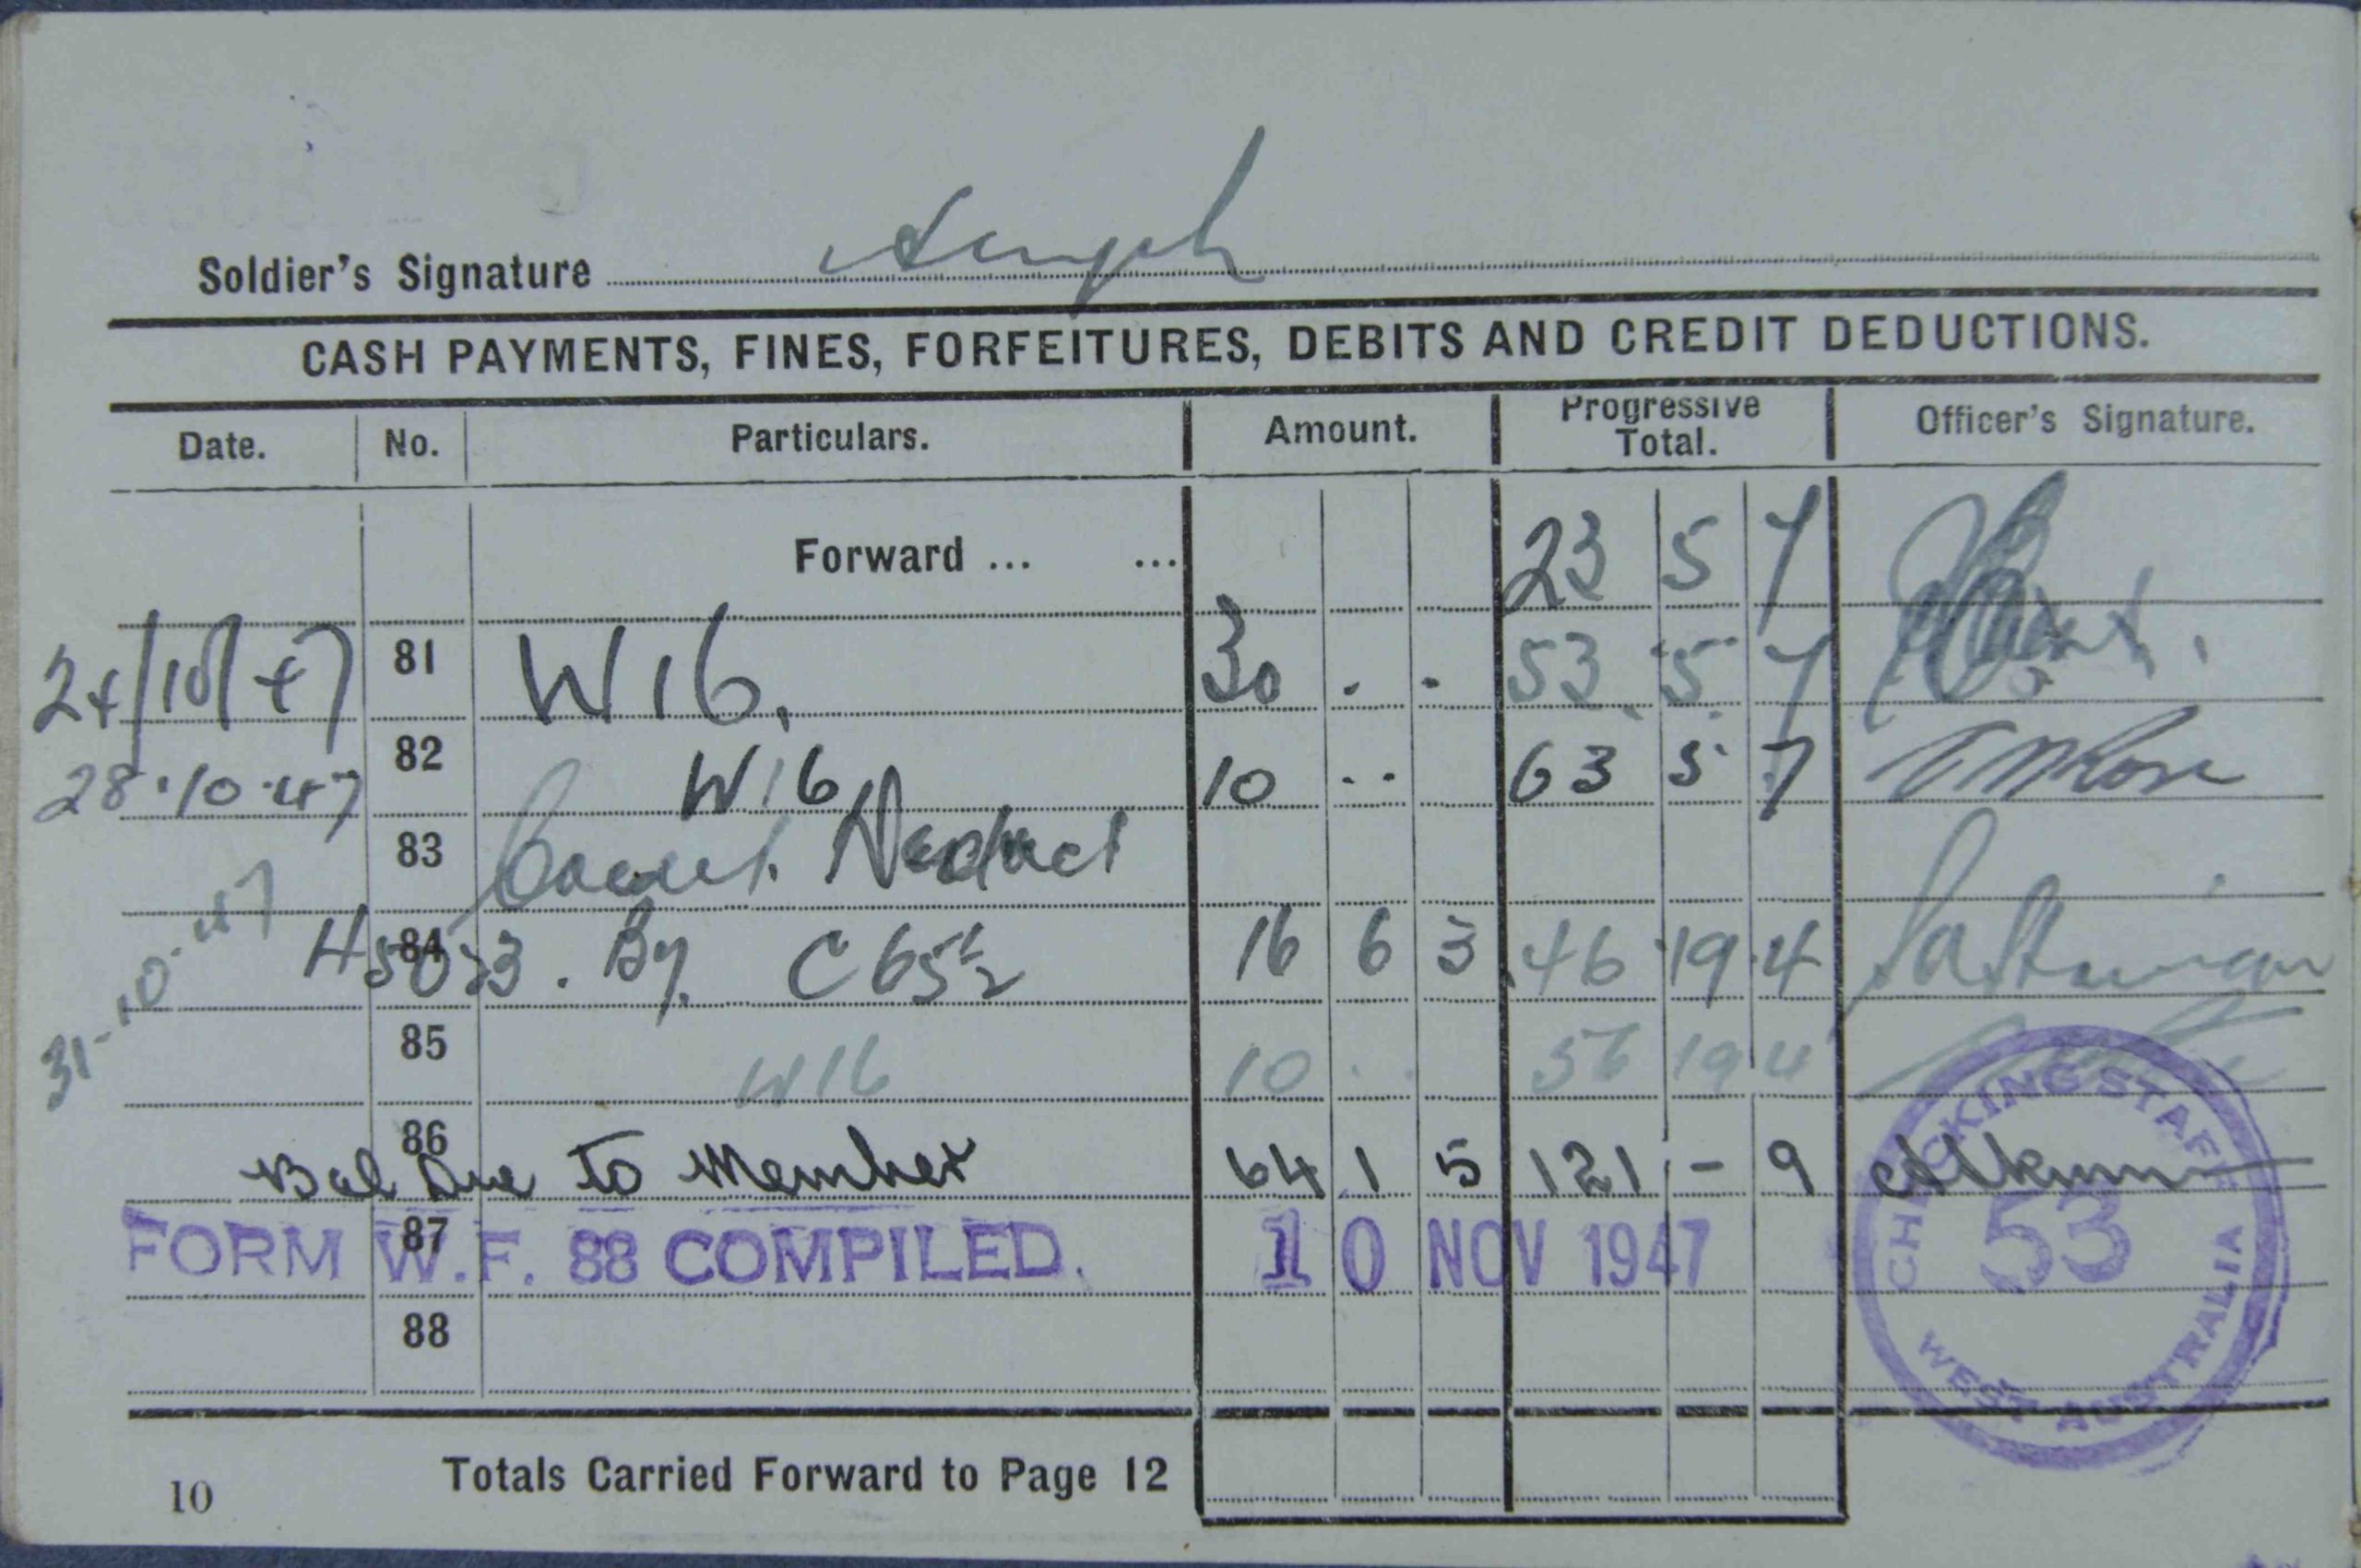 Soldier's Signature
CASH PAYMENTS, FINES, FORFEITURES, DEBITS AND CREDIT DEDUCTIONS.
Date. No. Particulars. Amount. Progressive Total. Officer's Signature.
Forward ... ... 23 5 7
24/10/47 81 W16. 30 . . 53 5 7
28.10.47 82 W16 10 . . 63 5 7
83 Deduct
84 . By C 65 16 6 3 46 19 4
31-10-47 85 W16 10 . . 56 19 4
86 Bal Due To Member 64 1 5 121 - 9
87 FORM W.F. 88 COMPILED. 10 NOV 1947
88
CHECKING STAFF
53
WEST AUSTRALIA
Totals Carried Forward to Page 12
10